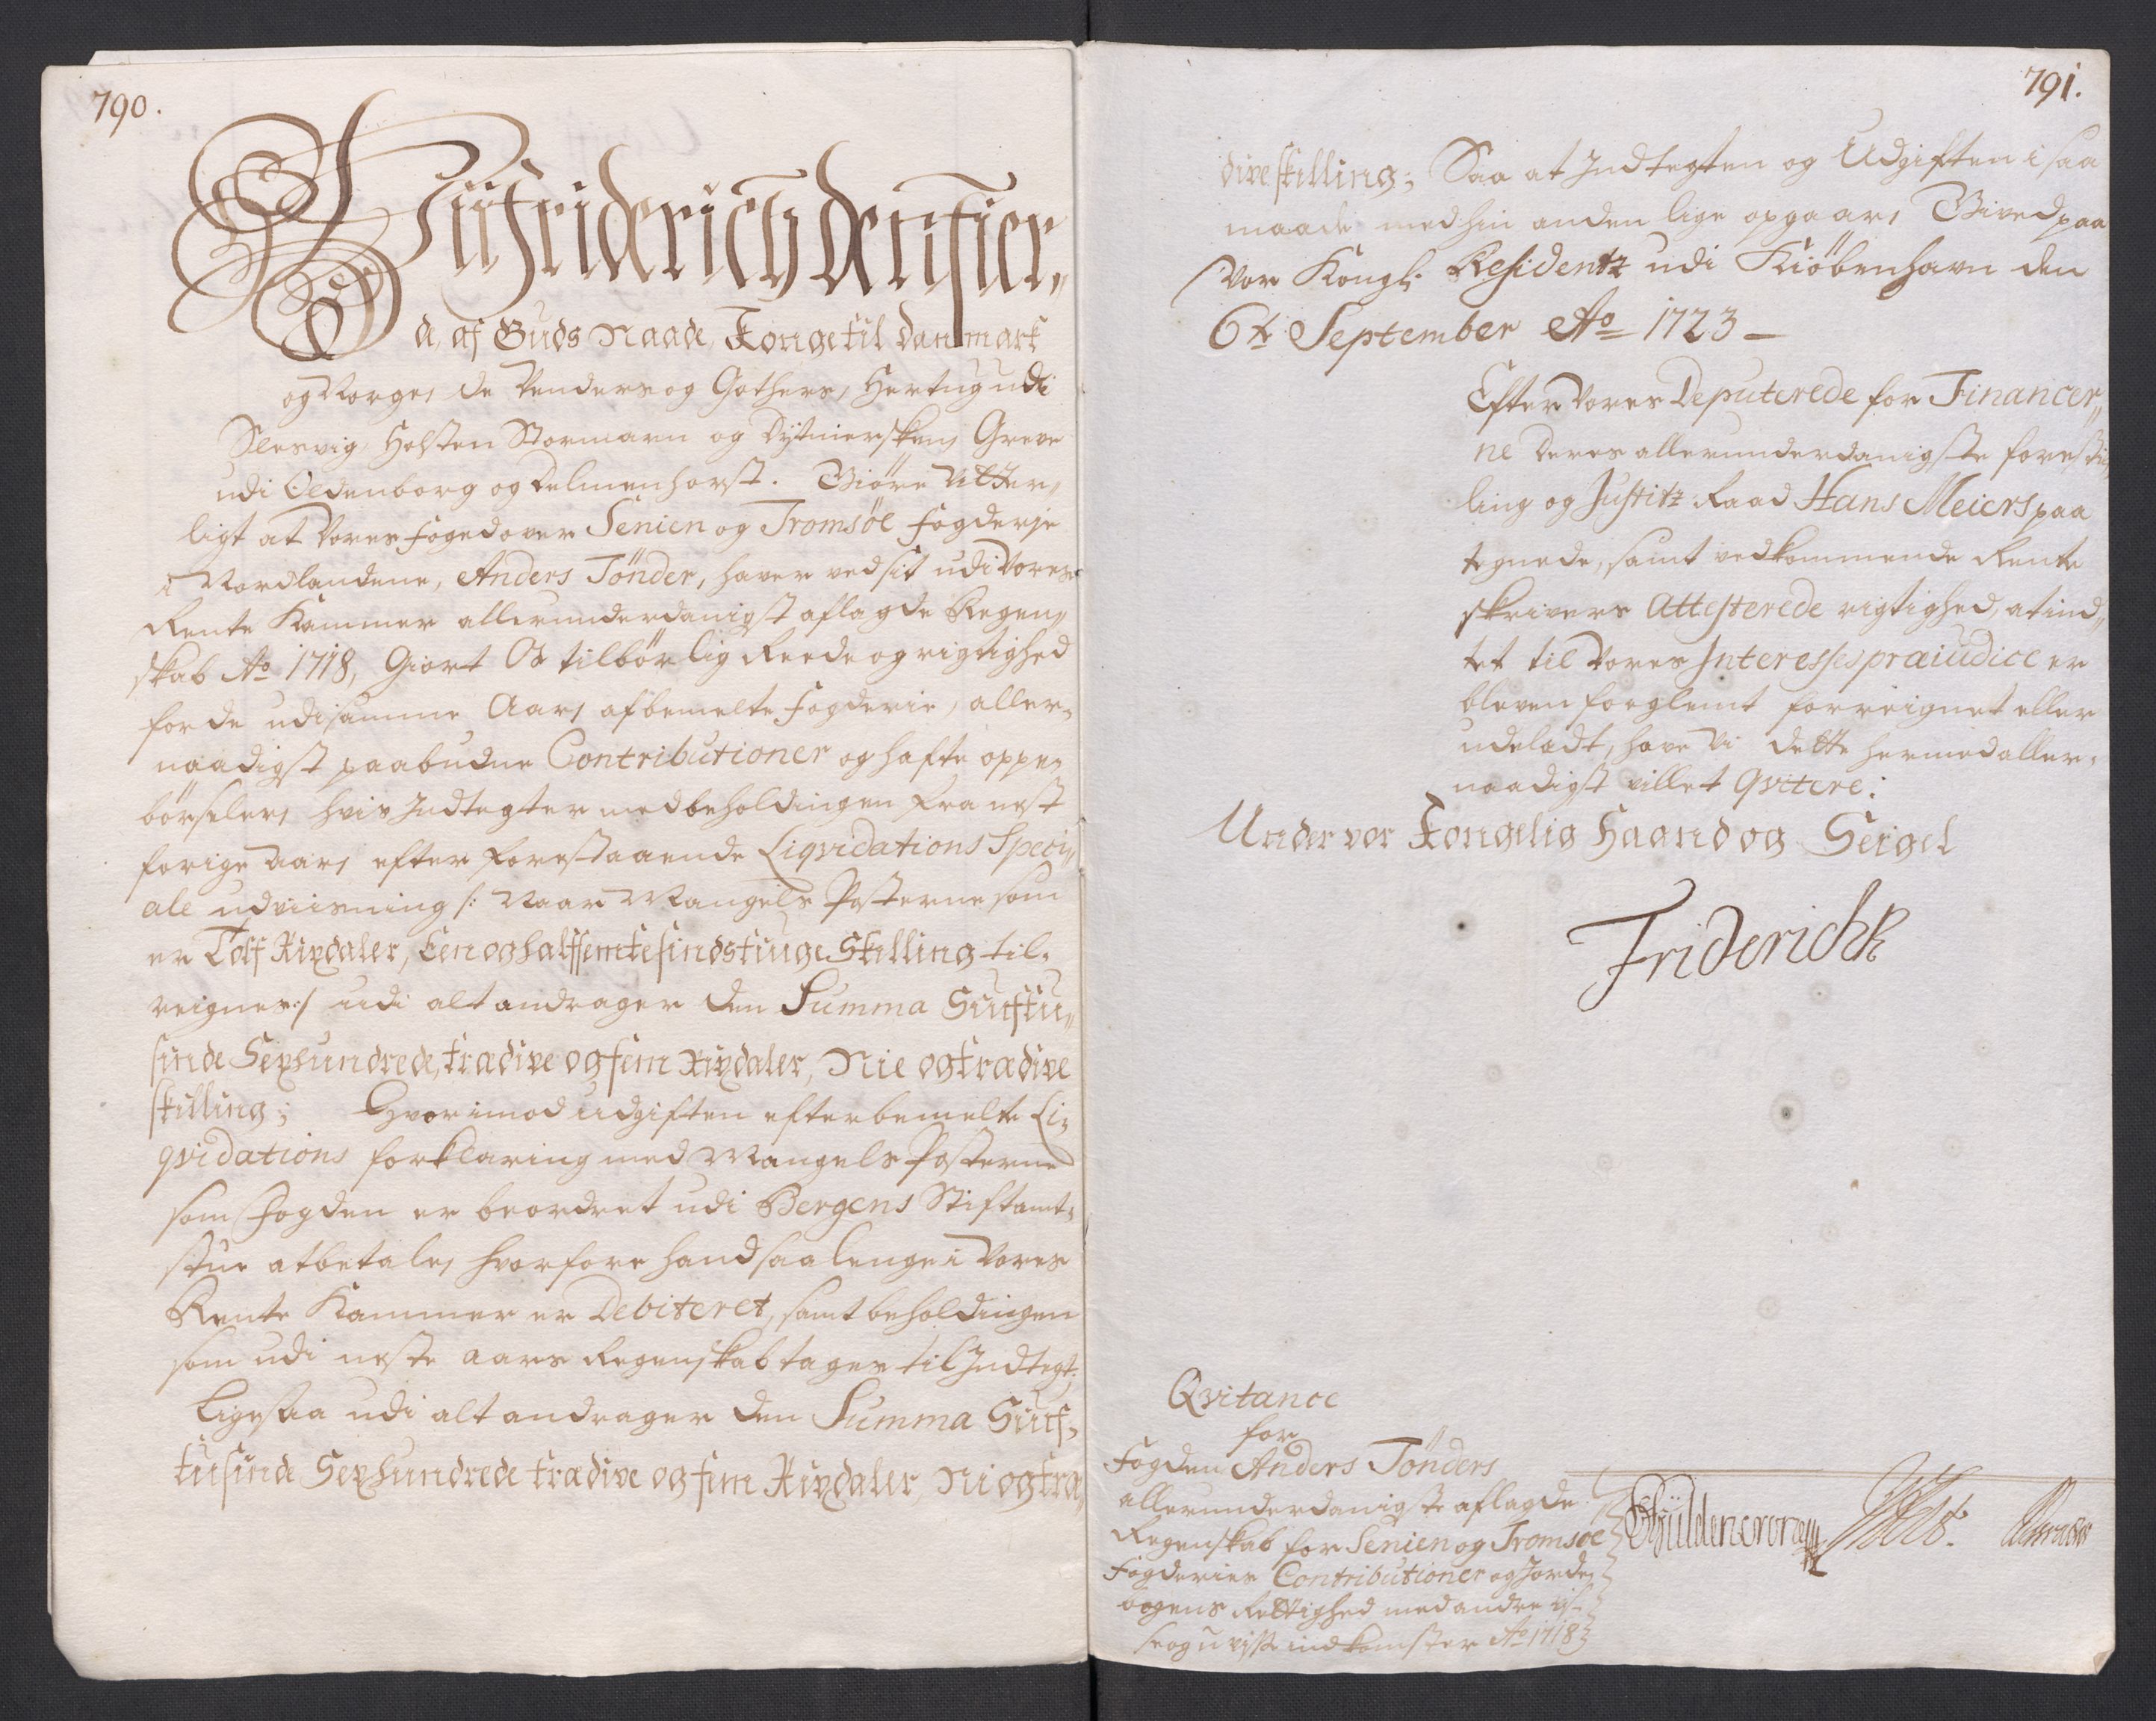 790.
Vii Friderich den fier„
de, af Guds Naade, Konge til Danmark
og Norge, de Venders og Gothers, Hertug udi
Slesvig, Holsten Stormarn og Dytmersken, Greve
udi Oldenborg og Delmenhorst. Giøre Vitter„
ligt at Vores foged over Senien og Tromsöe fogderje
i Nordlandene, Anders Tönder, haver ved sit udi Vores
Rente Kammer allerunderdanigst aflagde Regen„
skab Ao 1718, Giort Os tilbörlig Reede og rigtighed
for de udi samme Aar, af bemelte fogderie, aller„
naadigst paabudne Contributioner og hafte oppe„
börseler, hvis Indtegter med beholdingen fra nest
forige Aar, efter forestaaende Liqvidations Speci„
ale udviisning /: Naar Mangels Posterne som
er Tolf Rixdaler, Een og halffemtesindstiuge Skilling til„
reignes :/ udi alt andrager den Summa Siuftu„
sinde Sexhundrede, trædive og fem Rixdaler, Nie og trædive
skilling; Hvorimod udgiften efter bemelte Li„
qvidations forklaring med Mangels Posterne
som fogden er beordret udi Bergens Stiftamt„
stue at betale, hvorfore hand saa lenge i Vores
Rente Kammer er Debiteret, samt beholdingen
som udi neste aars Regenskab tages til Indtegt,
Ligesaa udi alt andrager den Summa Siuf„
tusinde Sexhundrede trædive og fem Rixdaler, Ni og træ„
791.
dive skilling; Saa at Indtegten og Udgiften i saa
maade med hin anden lige opgaar, Givet paa
Vor Kongl. Residentz udi Kiöbenhavn den
6te September Ao 1723 –
Efter Vores Deputerede for Financer„
ne Deres allerunderdanigste forestil„
ling og Justitz Raad Hans Meiers paa
tegnede, samt vedkommende Rente
skrivers Attesterede rigtighed, at int„
tet til Vores Interesses præiudice er
bleven forglemt forreignet eller
udeladt, have Vi dette hermed aller„
naadigst villet Qvitere;
Under vor Kongelig Haand og Seigel
Friderich R
Qvitance
for
Fogden Anders Tönders
allerunderdanigste aflagde
Regenskab for Senien og Tromsøe
Fogderies Contributioner og Jorde„
bogens Rettighed med andre vis„
se og uvisse indkomster Ao 1718
Güldencrone